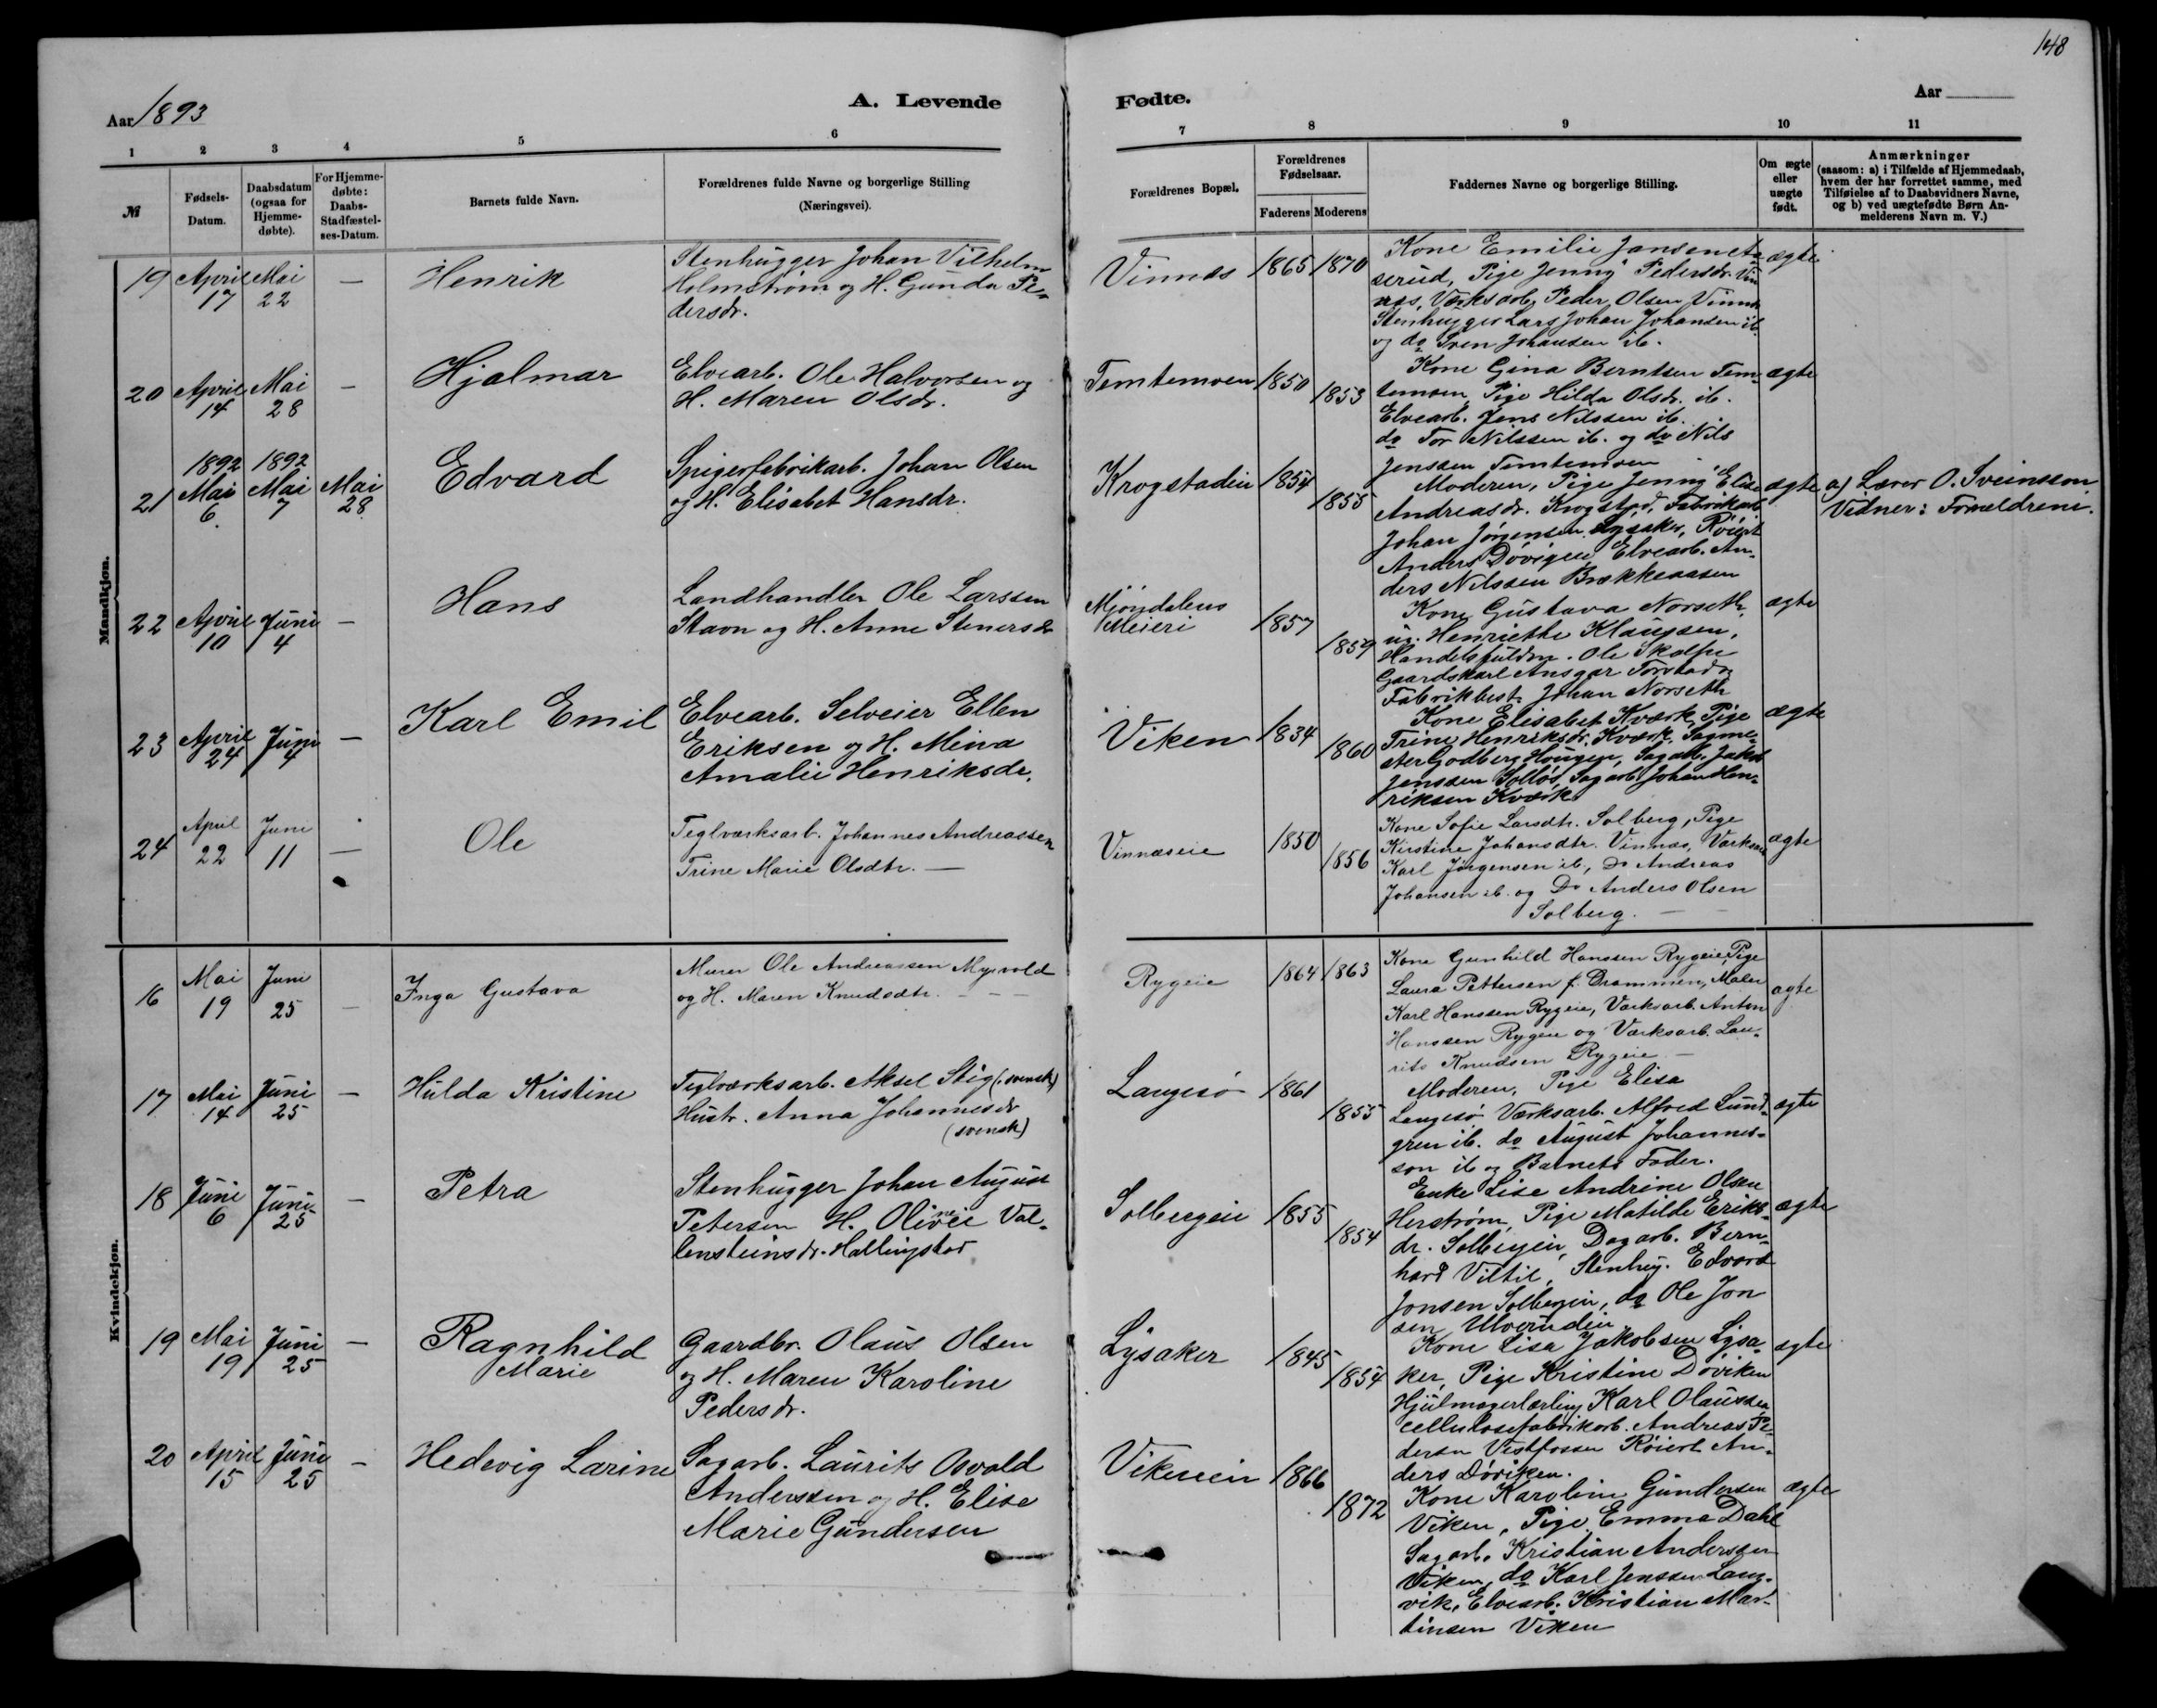 148
Aar 1893
A. Levende
Fødte.
Aar
1 2 3 4 5 6 7 8 9 10 11
№
Fødsels-
Datum.
Daabsdatum
(ogsaa for
Hjemme-
døbte).
For Hjemme-
døbte:
Daabs-
Stadfæstel-
ses-Datum.
Barnets fulde Navn.
Forældrenes fulde Navne og borgerlige Stilling
(Næringsvei).
Forældrenes Bopæl.
Forældrenes
Fødselsaar.
Faderens Moderens
Faddernes Navne og borgerlige Stilling.
Om ægte
eller
uægte
født.
Anmærkninger
(saasom: a) i Tilfælde af Hjemmedaab,
hvem der har forrettet samme, med
Tilføielse af to Daabsvidners Navne,
og b) ved uægtefødte Børn An-
melderens Navn m. V.)
Mandkjøn.
19 April 17 Mai 22 — Henrik
Stenhugger Johan Vilhelm
Holmstrøm og H. Gunda Pe-
dersdr.
Vinnæs 1865 1870
Kone Emilie Jansen
serud, Pige Jenny Pedersdr. Vin
næs, Værksarb. Peder Olsen Vinnæs
Stenhugger Lars Johan Johansen ib.
og do Sven Johansen ib.
ægte
20 April 14 Mai 28 — Hjalmar
Elvearb. Ole Halvorsen og
H. Maren Olsdr.
Temtemoen 1850 1853
Kone Gina Berntsen Tem-
temoen, Pige Hilda Olsdr. ib.
Elvearb. Jens Nilssen ib.
do Tor Nilssen ib. og do Nils
Jenssen Temtemoen
ægte
21 1892 Mai 6. 1892 Mai 7 Mai 28 Edvard
Spigerfabrikarb. Johan Olsen
og H. Elisabet Hansdr.
Krogstadeie 1854 1855
Moderen, Pige Jenny Elise
Andreasdr. Krogstad, Fabrikarb
Johan Jørgensen Lysaker, Røiert
Anders Døvigen Elvearb. An-
ders Nilssen Brekkeaasen
ægte
a) Lærer O. Sveinsson
Vidner: Forældrene.
22 April 10 Juni 4 — Hans
Landhandler Ole Larssen
Stavn og H. Anne Stenersdr
Mjøndalens
Meieri
1857 1859
Kone Gustava Norseth,
ug. Henriette Klaussen,
Handelsfuldm. Ole
Gaardskarl Ansgar Torstad,
Fabrikbest. Johan Norseth
ægte
23 April 24 Juni 4 — Karl Emil
Elvearb. Selveier Ellen
Eriksen og H. Mina
Amalie Henriksdr.
Viken 1834 1860
Kone Elisabet Kværk, Pige
Trine Henriksdr. Kværk, Sagme-
ster Godberg Hougen, Sagarb. Jakob
Jenssen Solløs, Sagarb. Johan Hen-
riksen Kværk
ægte
24 April 22 Juni 11 — Ole
Teglværksarb. Johannes Andreassen
Trine Marie Olsdtr. —
Vinnæseie 1850 1856
Kone Sofie Larsdtr. Solberg, Pige
Kirstine Johansdtr. Vinnæs, Værksarb
Karl Jørgensen ib., Do Andreas
Johansen ib. og Do Anders Olsen
Solberg. —
ægte
Kvindekjøn.
16 Mai 19 Juni 25 — Inga Gustava
Murer Ole Andreassen Myrvold
og H. Maren Knudsdtr. — — —
Rygeie 1864 1863
Kone Gunhild Hanssen Rygeie, Pige
Laura Pettersen f. Drammen, Maler
Karl Hanssen Rygeie, Værksarb. Anton
Hanssen Rygeie og Værksarb. Lau-
rits Knudsen Rygeie —
ægte
17 Mai 14 Juni 25 — Hulda Kristine
Teglværksarb. Aksel Stig (svensk)
Hustr. Anna Johannesdr
(svensk)
Langesø 1861 1855
Moderen, Pige Elisa
Langesø Værksarb. Alfred Lund-
gren ib. do August Johannes-
son ib og Barnets Fader.
ægte
18 Juni 6 Juni 25 — Petra
Stenhugger Johan August
Petersen H. Olivie Val-
lensteinsdr. Hallingstad
Solbergeie 1855 1854
Enke Lise Andrine Olsen
Herstrøm, Pige Matilde Eriks-
dr. Solbergeie, Dagarb. Bern-
hard Viltil, Stenhug. Edvard
Jonsen Solbergeie, do Ole Jon
sen Ulverudeie
ægte
19 Mai 19 Juni 25 — Ragnhild
Marie
Gaardbr. Olaus Olsen
og H. Maren Karoline
Pedersdr.
Lysaker 1845 1854
Kone Lisa Jakobsen Lysa-
ker, Pige Kristine Døviken
Hjulmagerlærling Karl Olaussen
cellulosefabrikarb. Andreas Pe-
dersen Vestfossen Røiert An-
ders Døviken.
ægte
20 April 15 Juni 25 — Hedevig Larine
Sagarb. Laurits Osvald
Anderssen og H. Elise
Marie Gundersen
Vikeneie 1866 1872
Kone Karoline Gundersen
Viken, Pige Emma Dahl
Sagarb. Kristian Anderssen
Viken, do Karl Jenssen Laur-
vik, Elvearb. Kristian Mar-
tinsen Viken
ægte